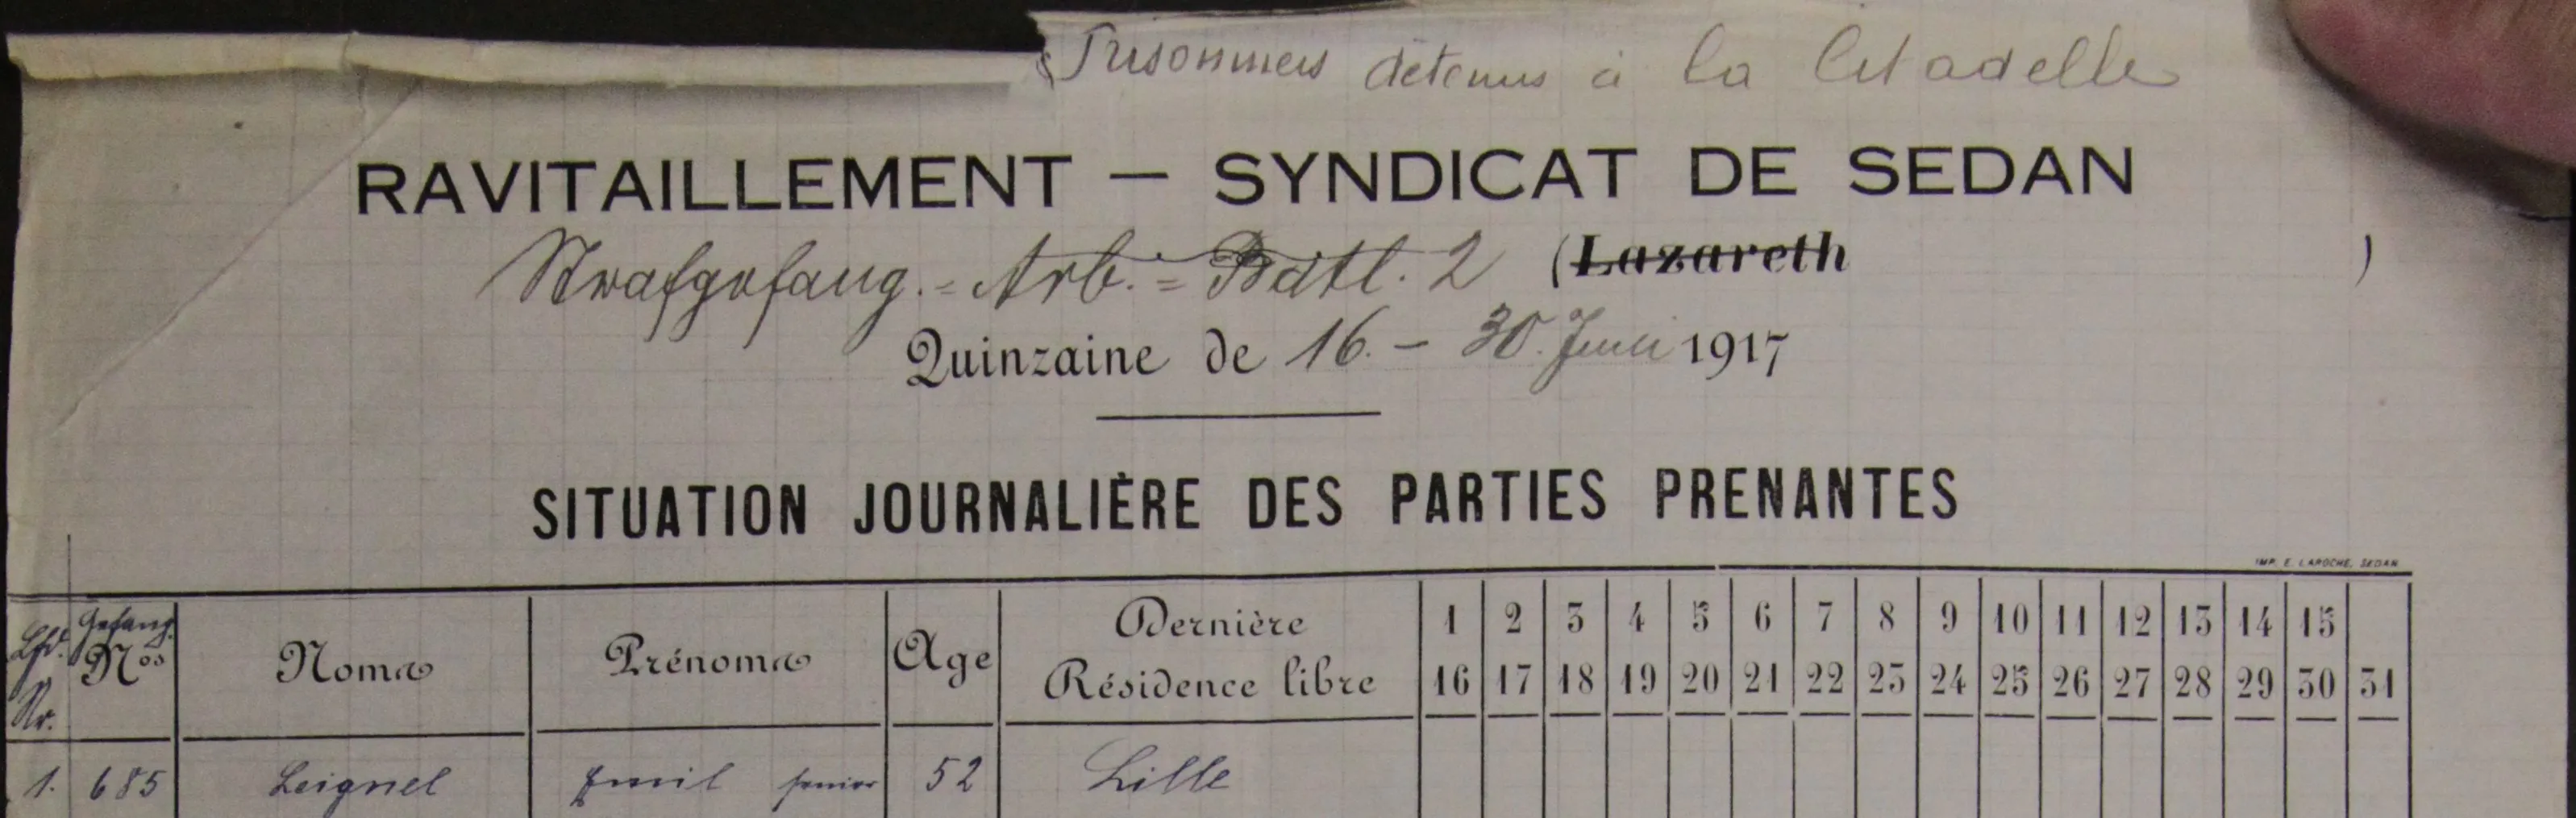 Prisonniers détenus à la Citadelle
RAVITAILLEMENT — SYNDICAT DE SEDAN
Strafgefang.=Arb.=Batl. 2 (Lazareth )
Quinzaine de 16. – 30. Juni 1917
SITUATION JOURNALIÈRE DES PARTIES PRENANTES
IMP. E. LAROCHE, SEDAN
Lfd. Nr. Gefang. Nos Noms Prénoms Age Dernière Résidence libre
1 2 3 4 5 6 7 8 9 10 11 12 13 14 15
16 17 18 19 20 21 22 23 24 25 26 27 28 29 30 31
1. 685 Leignel Emil senior 52 Lille